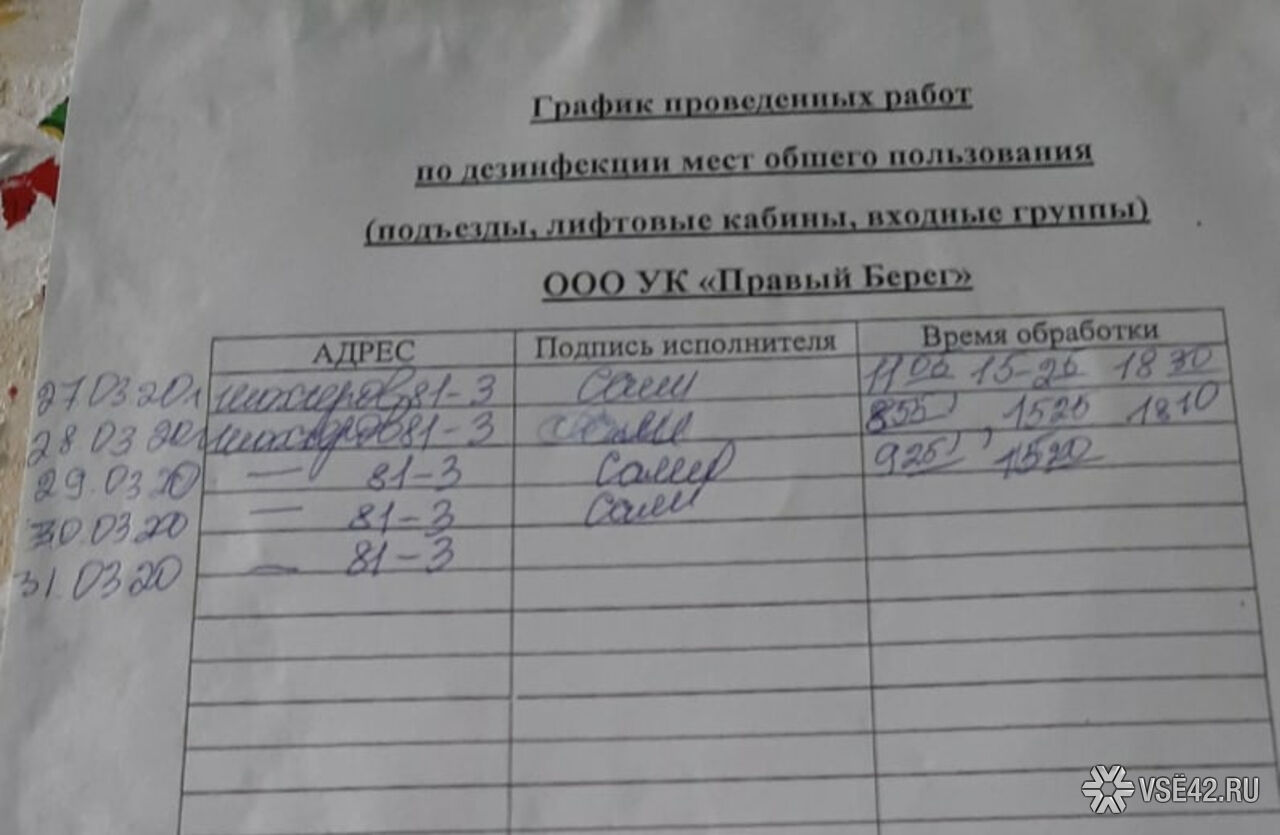 График проведенных работ
по дезинфекции мест обшего пользования
(подъезды, лифтовые кабины, входные группы)
ООО УК «Правый Берег»
АДРЕС Подпись исполнителя Время обработки
27.03.20г 81-3 11 05 15-25 18 30
28 03 20г 81-3 8 55 15 25 18 10
29.03 20 — 81-3 9 25 15 20
30.03.20 — 81-3
31.03 20 — 81-3
VSЁ42.RU